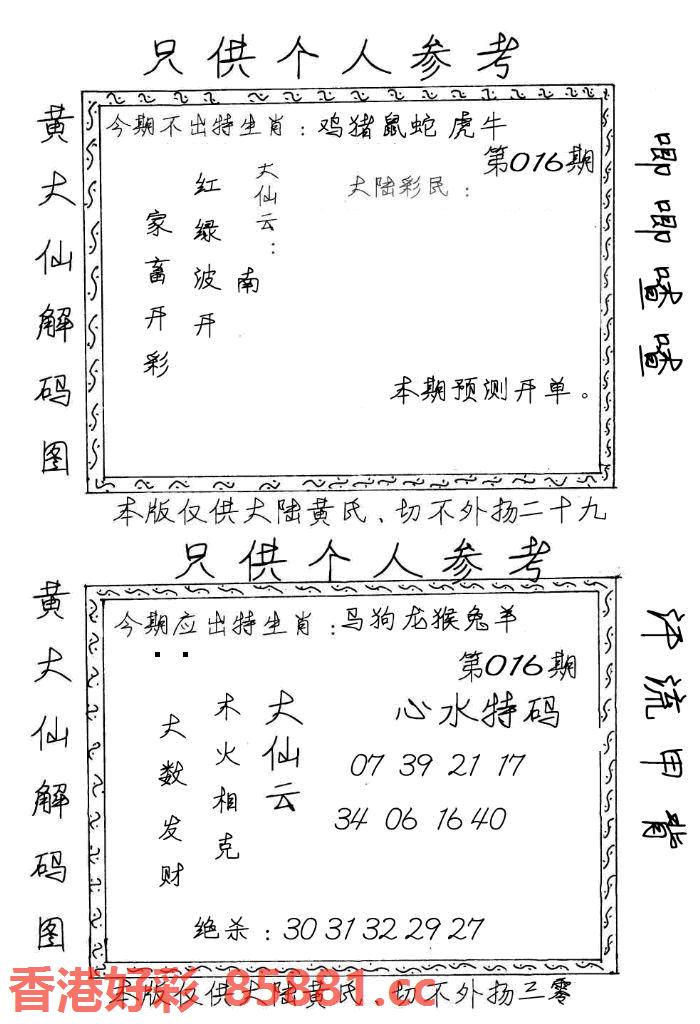 只供个人参考
黄大仙解码图
今期不出特生肖：鸡猪鼠蛇虎牛
第016期
大陆彩民：
大仙云：
南
红绿波开
家畜开彩
本期预测开单。
唧唧喳喳
本版仅供大陆黄氏、切不外扬二十九
只供个人参考
黄大仙解码图
今期应出特生肖：马狗龙猴兔羊
第016期
大仙云
木火相克
大数发财
心水特码
07 39 21 17
34 06 16 40
绝杀：30 31 32 29 27
汗流甲背
本版仅供大陆黄氏、切不外扬三零
香港好彩 85881.cc